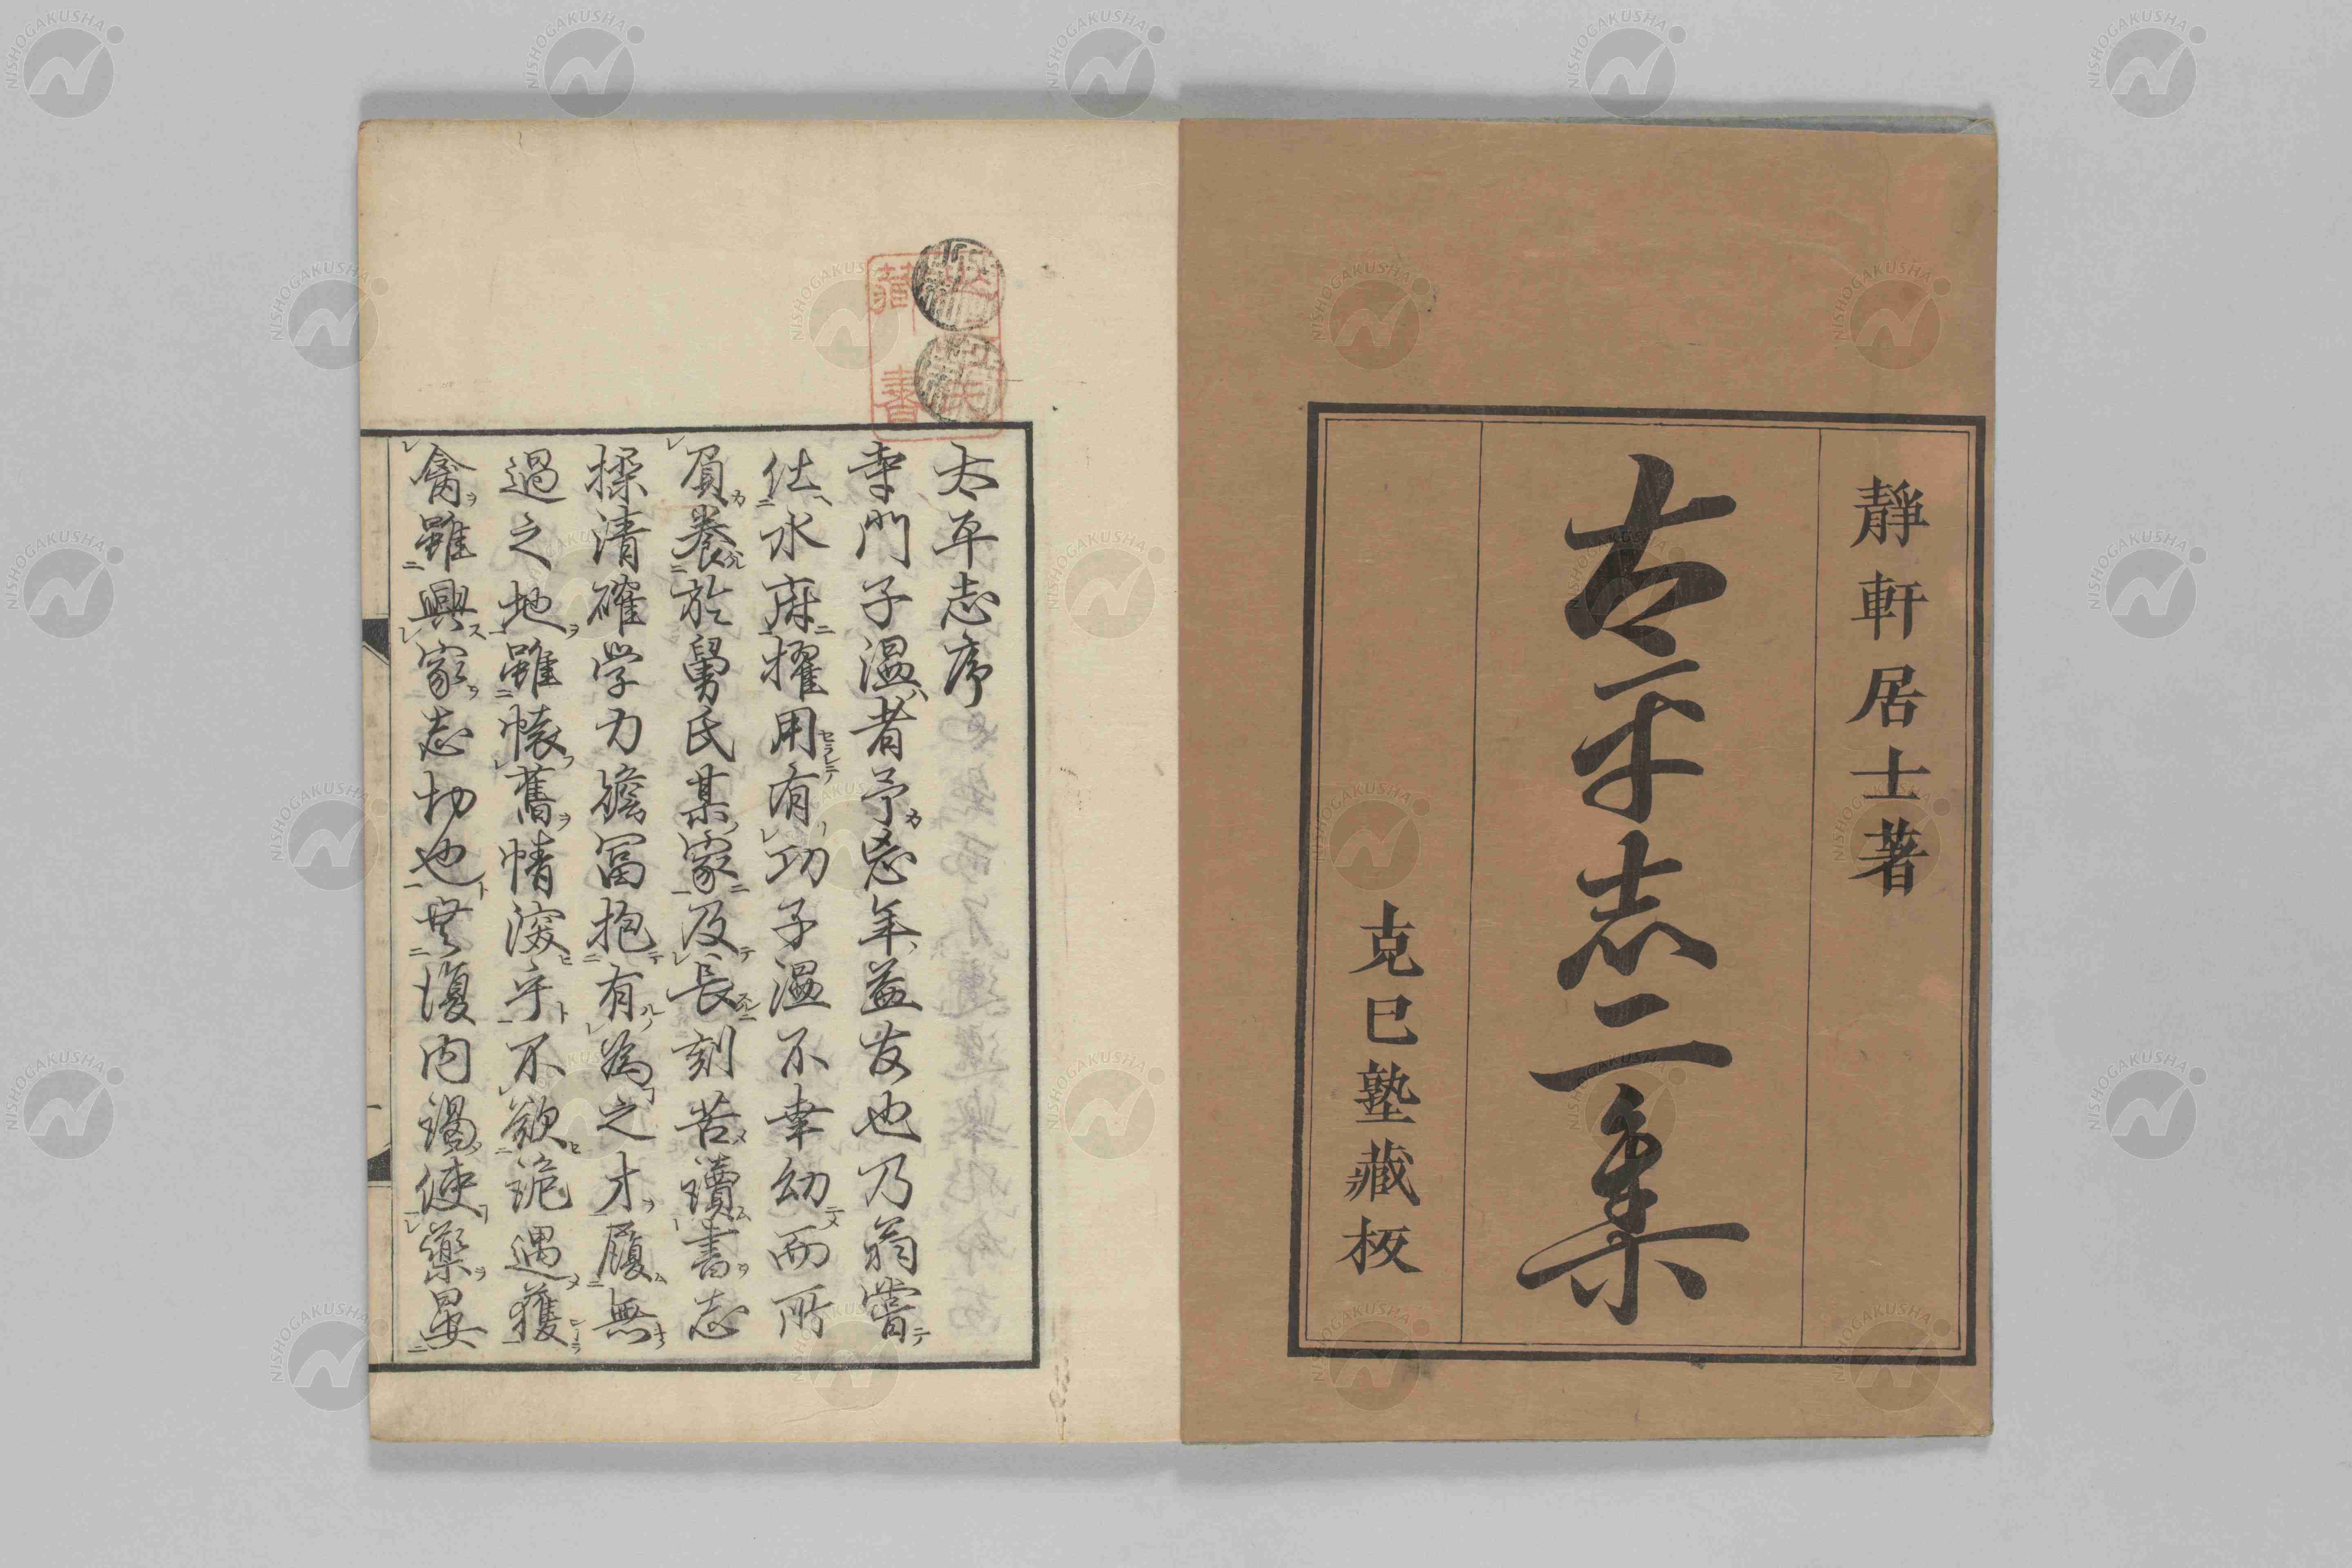 靜軒居士著
太平志二集
克己塾藏板
太平志序
寺門子温者予忘年益友也乃翁嘗
仕水府擢用有功子温不幸幼而所
養於舅氏某家及長刻苦讀書志
操清確学力贍冨抱有為之才履無
過之地雖懐舊情深乎不欲詭遇獲
禽雖興家志切也無復内謁使藥晏
藏書
一
NISHOGAKUSHA